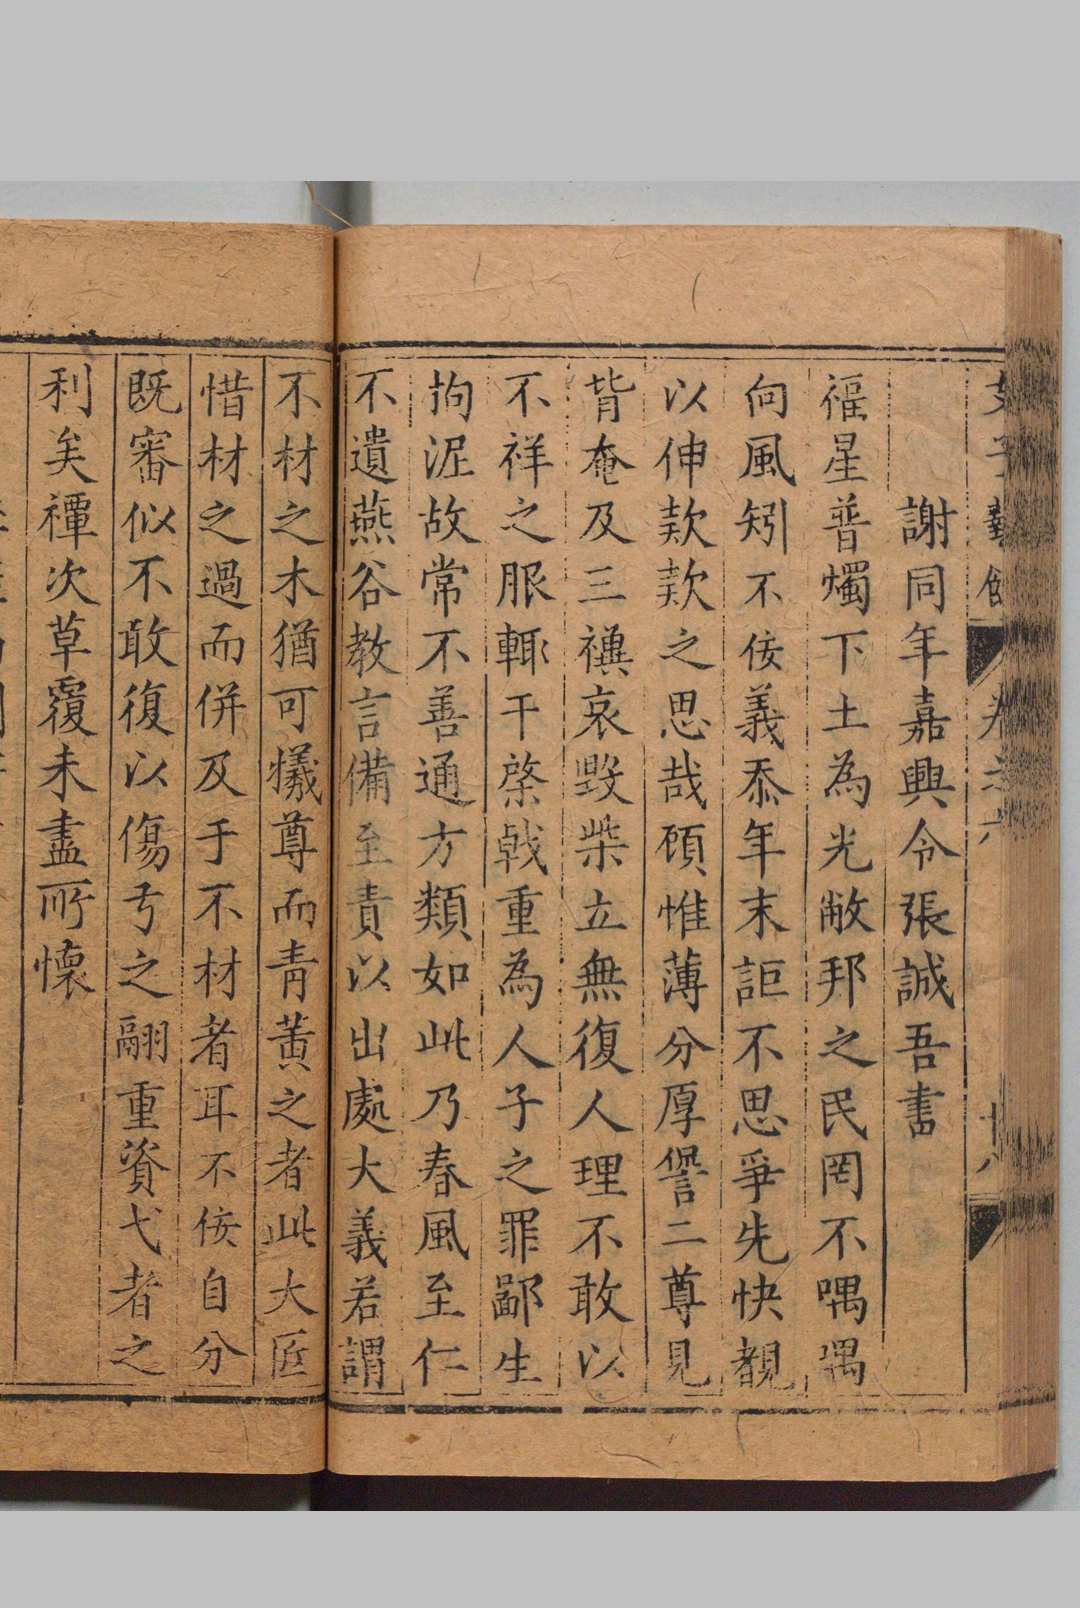 謝同年嘉興令張誠吾書
福星普燭下土為光敝邦之民罔不喁喁
向風矧不佞義忝年末詎不思爭先快覩
以伸款款之思哉顧惟薄分厚譽二尊見
背奄及三禩哀毀柴立無復人理不敢以
不祥之服輙干棨戟重為人子之罪鄙生
拘泥故常不善通方類如此乃春風至仁
不遺燕谷教言備至責以出處大義若謂
不材之木猶可犧尊而青黃之者此大匠
惜材之過而併及于不材者耳不佞自分
既審似不敢復以傷弓之翮重資弋者之
利矣禫次草覆未盡所懷